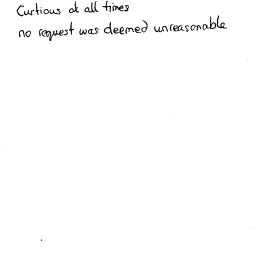 Curtious at all times
no request was deemed unreasonable